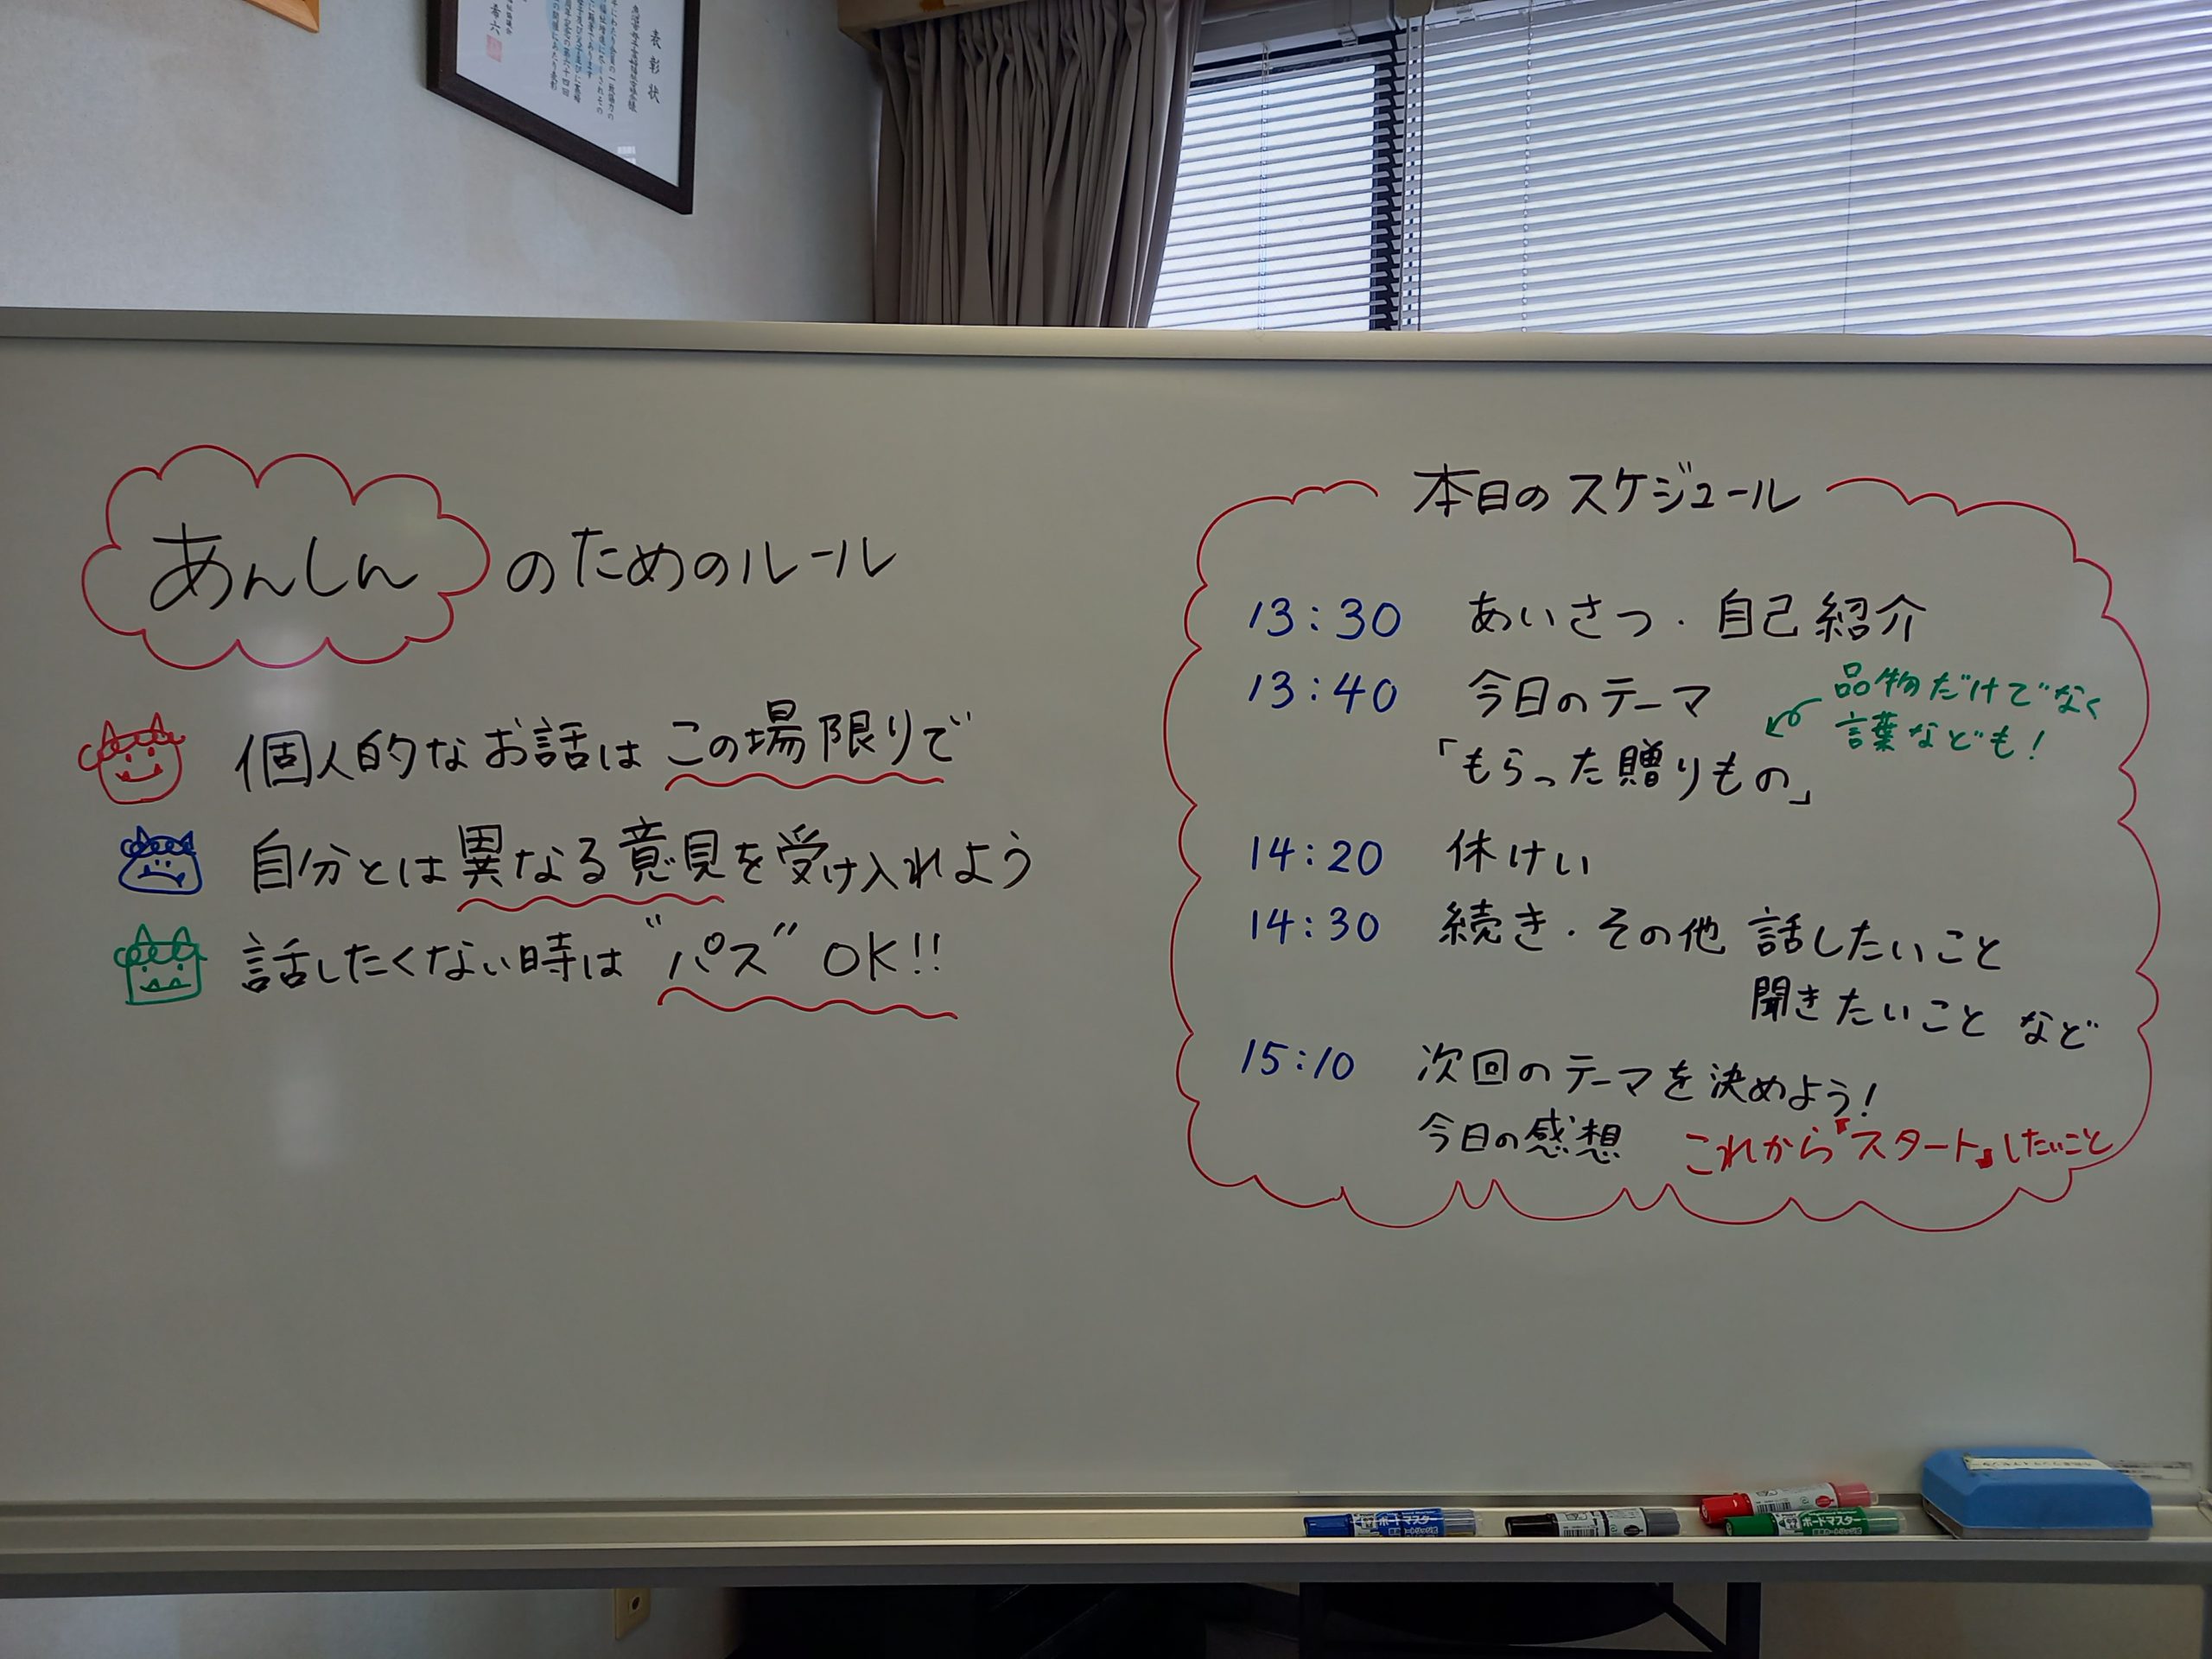 表彰状
あんしんのためのルール
個人的なお話はこの場限りで
自分とは異なる意見を受け入れよう
話したくない時は"パス"OK!!
本日のスケジュール
13:30 あいさつ・自己紹介
13:40 今日のテーマ
品物だけでなく
言葉なども!
「もらった贈りもの」
14:20 休けい
14:30 続き・その他 話したいこと
聞きたいこと など
15:10 次回のテーマを決めよう!
今日の感想 これから『スタート』したいこと
ボードマスター
ボードマスター